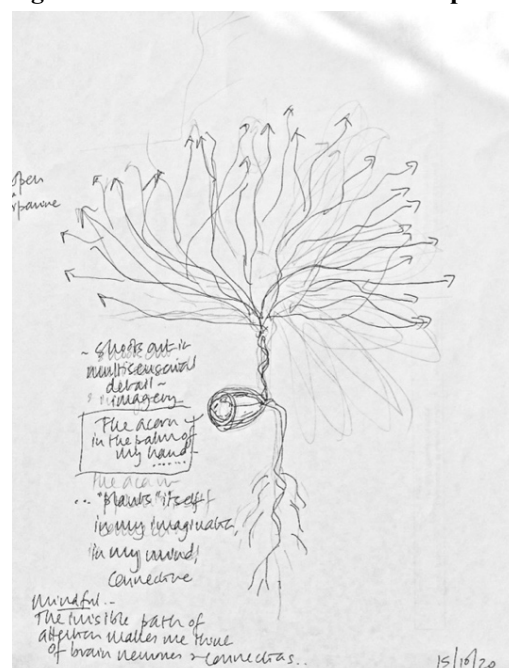 open
~ Shoots out in
multisensorial
detail ~
imagery
The acorn
in the palm of
my hand
......
The acorn
... "plants" itself
in my imaginatn,
in my mind!
Connective
Mindful --
The invisible path of
attention makes me think
of brain neurones & connections..
15/10/20